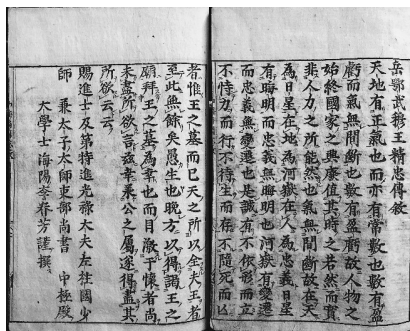 岳鄂武穆王精忠傳敘
天地有正氣也而亦有常數也數有盈
虧而氣無間斷也數有盈虧故人物之
始終國家之興廢值其時之若然而實
非人力之所能然也氣無間斷故在天
為日星在地為河嶽在人為忠義日星
有晦明而忠義無晦明也河嶽有變遷
而忠義無變遷也是誠有不依形而立
不恃力而行不待生而存不隨死而凶
者惟王之墓而已天之所以全夫王者
至此無餘矣愚生也晚方以得謁王之
廟拜王之墓為幸也而目散于懷者尚
未盡所欲言茲幸義公之屬遂得盡其
所欲云云
賜進士及第特進光祿大夫左柱國少
師 兼太子太師吏部尚書 中極殿
大學士海陽李春芳謹撰